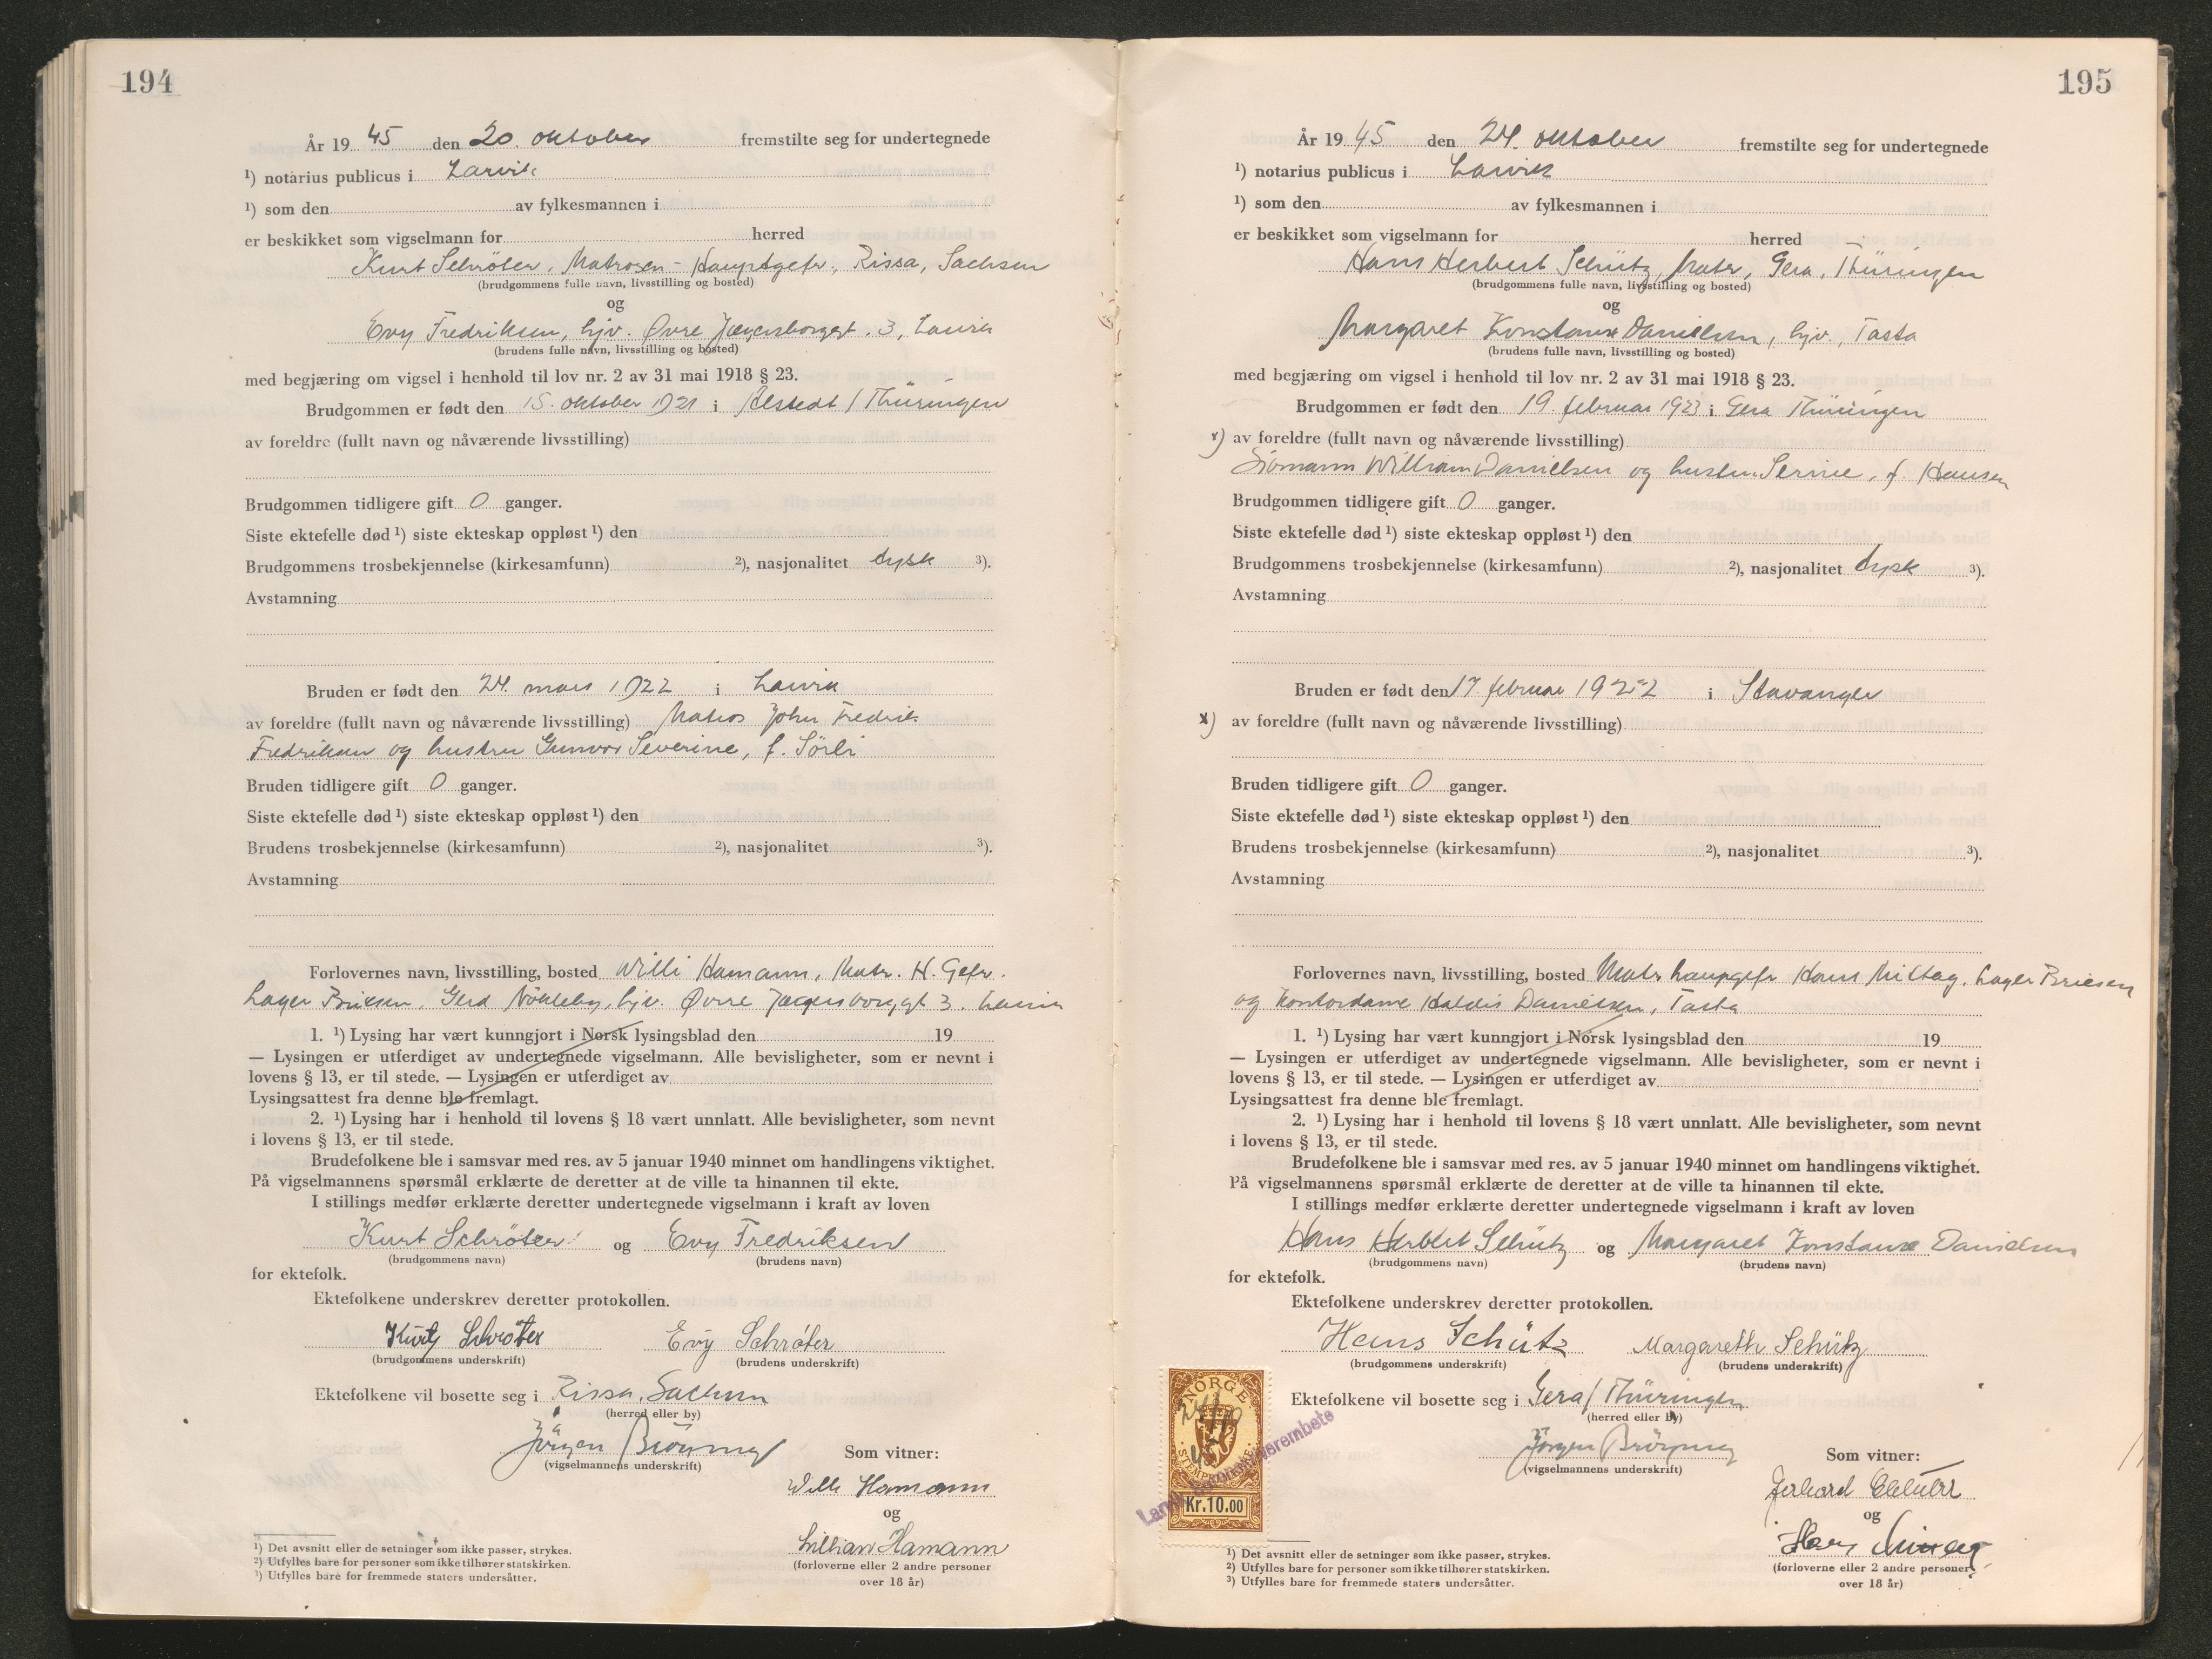 194
År 19 45 den 20. oktober fremstilte seg for undertegnede
¹) notarius publicus i Larvik
¹) som den av fylkesmannen i
er beskikket som vigselmann for herred
Kurt Schröter, Matrosen-Hauptgefr., Rissa, Sachsen
(brudgommens fulle navn, livsstilling og bosted)
og
Evy Fredriksen, hjv. Øvre Jægersborggt. 3, Larvik
(brudens fulle navn, livsstilling og bosted)
med begjæring om vigsel i henhold til lov nr. 2 av 31 mai 1918 § 23.
Brudgommen er født den 15. oktober 1921 i Alstedt / Thüringen
av foreldre (fullt navn og nåværende livsstilling)
Brudgommen tidligere gift 0 ganger.
Siste ektefelle død ¹) siste ekteskap oppløst ¹) den
Brudgommens trosbekjennelse (kirkesamfunn) ²), nasjonalitet tysk ³).
Avstamning
Bruden er født den 24. mars 1922 i Larvik
av foreldre (fullt navn og nåværende livsstilling) Matros John Fredrik
Fredriksen og hustru Gunvor Severine, f. Sörli
Bruden tidligere gift 0 ganger.
Siste ektefelle død ¹) siste ekteskap oppløst ¹) den
Brudens trosbekjennelse (kirkesamfunn) ²), nasjonalitet ³).
Avstamning
Forlovernes navn, livsstilling, bosted Willi Hamann, Matr. H. Gefr.
Lager Briesen, Gerd Nökleby, hjv. Øvre Jægersborggt 3. Larvik
1. ¹) Lysing har vært kunngjort i Norsk lysingsblad den 19
— Lysingen er utferdiget av undertegnede vigselmann. Alle bevisligheter, som er nevnt i
lovens § 13, er til stede. — Lysingen er utferdiget av
Lysingsattest fra denne ble fremlagt.
2. ¹) Lysing har i henhold til lovens § 18 vært unnlatt. Alle bevisligheter, som nevnt
i lovens § 13, er til stede.
Brudefolkene ble i samsvar med res. av 5 januar 1940 minnet om handlingens viktighet.
På vigselmannens spørsmål erklærte de deretter at de ville ta hinannen til ekte.
I stillings medfør erklærte deretter undertegnede vigselmann i kraft av loven
Kurt Schröter og Evy Fredriksen
(brudgommens navn) (brudens navn)
for ektefolk.
Ektefolkene underskrev deretter protokollen.
Kurt Schröter Evy Schröter
(brudgommens underskrift) (brudens underskrift)
Ektefolkene vil bosette seg i Rissa, Sachsen
(herred eller by)
Jörgen Brönnung
(vigselmannens underskrift)
Som vitner:
Willi Hamann
og
Lillian Hamann
(forloverne eller 2 andre personer
over 18 år)
¹) Det avsnitt eller de setninger som ikke passer, strykes.
²) Utfylles bare for personer som ikke tilhører statskirken.
³) Utfylles bare for fremmede staters undersåtter.
195
År 19 45 den 24. oktober fremstilte seg for undertegnede
¹) notarius publicus i Larvik
¹) som den av fylkesmannen i
er beskikket som vigselmann for herred
Hans Herbert Schütz, Matr., Gera, Thüringen
(brudgommens fulle navn, livsstilling og bosted)
og
Margaret Konstanse Danielsen, hjv., Tasta
(brudens fulle navn, livsstilling og bosted)
med begjæring om vigsel i henhold til lov nr. 2 av 31 mai 1918 § 23.
Brudgommen er født den 19. februar 1923 i Gera Thüringen
x) av foreldre (fullt navn og nåværende livsstilling)
Sjömann William Danielsen og hustru Serine, f. Hansen
Brudgommen tidligere gift 0 ganger.
Siste ektefelle død ¹) siste ekteskap oppløst ¹) den
Brudgommens trosbekjennelse (kirkesamfunn) ²), nasjonalitet tysk ³).
Avstamning
Bruden er født den 17. februar 1922 i Stavanger
x) av foreldre (fullt navn og nåværende livsstilling)
Bruden tidligere gift 0 ganger.
Siste ektefelle død ¹) siste ekteskap oppløst ¹) den
Brudens trosbekjennelse (kirkesamfunn) ²), nasjonalitet ³).
Avstamning
Forlovernes navn, livsstilling, bosted Matr. haupgefr Hans Mittag, Lager Briesen
og kontordame Haldis Danielsen, Tasta
1. ¹) Lysing har vært kunngjort i Norsk lysingsblad den 19
— Lysingen er utferdiget av undertegnede vigselmann. Alle bevisligheter, som er nevnt i
lovens § 13, er til stede. — Lysingen er utferdiget av
Lysingsattest fra denne ble fremlagt.
2. ¹) Lysing har i henhold til lovens § 18 vært unnlatt. Alle bevisligheter, som nevnt
i lovens § 13, er til stede.
Brudefolkene ble i samsvar med res. av 5 januar 1940 minnet om handlingens viktighet.
På vigselmannens spørsmål erklærte de deretter at de ville ta hinannen til ekte.
I stillings medfør erklærte deretter undertegnede vigselmann i kraft av loven
Hans Herbert Schütz og Margaret Konstanse Danielsen
(brudgommens navn) (brudens navn)
for ektefolk.
Ektefolkene underskrev deretter protokollen.
Hans Schütz Margareth Schütz
(brudgommens underskrift) (brudens underskrift)
Ektefolkene vil bosette seg i Gera / Thüringen
(herred eller by)
NORGE
24/10
45
STEMPELMERKE
Kr. 10.00
Jörgen Brönnung
(vigselmannens underskrift)
Som vitner:
Gerhard
og
Hans
(forloverne eller 2 andre personer
over 18 år)
¹) Det avsnitt eller de setninger som ikke passer, strykes.
²) Utfylles bare for personer som ikke tilhører statskirken.
³) Utfylles bare for fremmede staters undersåtter.